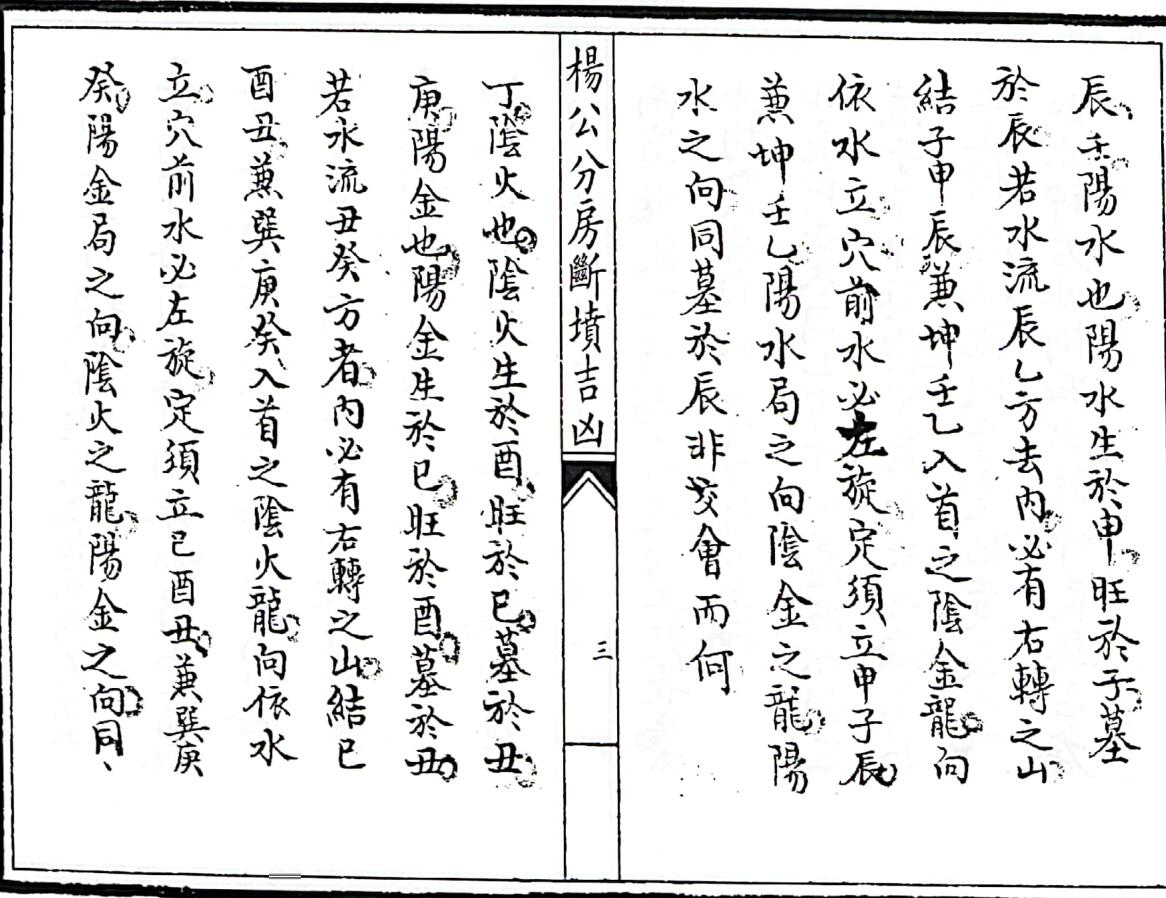 辰壬陽水也陽水生於申旺於子墓
於辰若水流辰乙方去內必有右轉之山
結子申辰兼坤壬乙入首之陰金龍向
依水立穴前水必左旋定須立申子辰
兼坤壬乙陽水局之向陰金之龍陽
水之向同墓於辰非交會而何
楊公分房斷墳吉凶
三
丁陰火也陰火生於酉旺於巳墓於丑
庚陽金也陽金生於巳旺於酉墓於丑
若水流丑癸方者內必有右轉之山結巳
酉丑兼巽庚癸入首之陰火龍向依水
立穴前水必左旋定須立巳酉丑兼巽庚
癸陽金局之向陰火之龍陽金之向同、